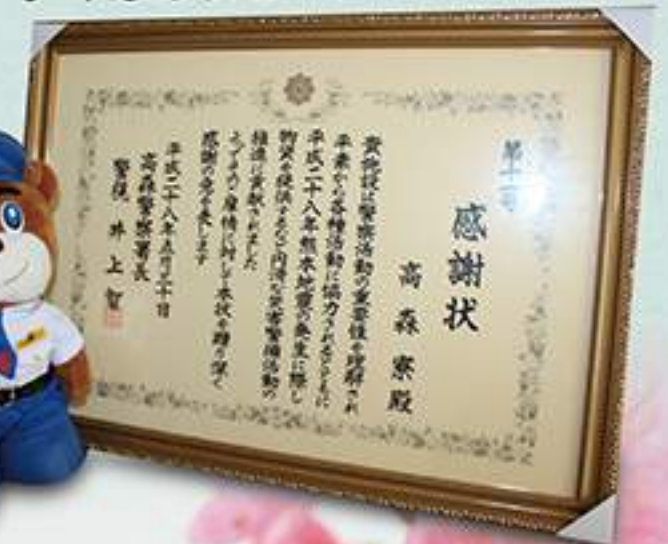 感謝状
高森寮殿
貴施設は警察活動の重要性を理解され
平素から各種活動に協力されるとともに
平成二十八年熊本地震の発生に際し
物資を提供するなど円滑な災害警備活動の
推進に貢献されました
感謝の意を表します
平成二十八年五月三十日
高森警察署長
警視 井上 智